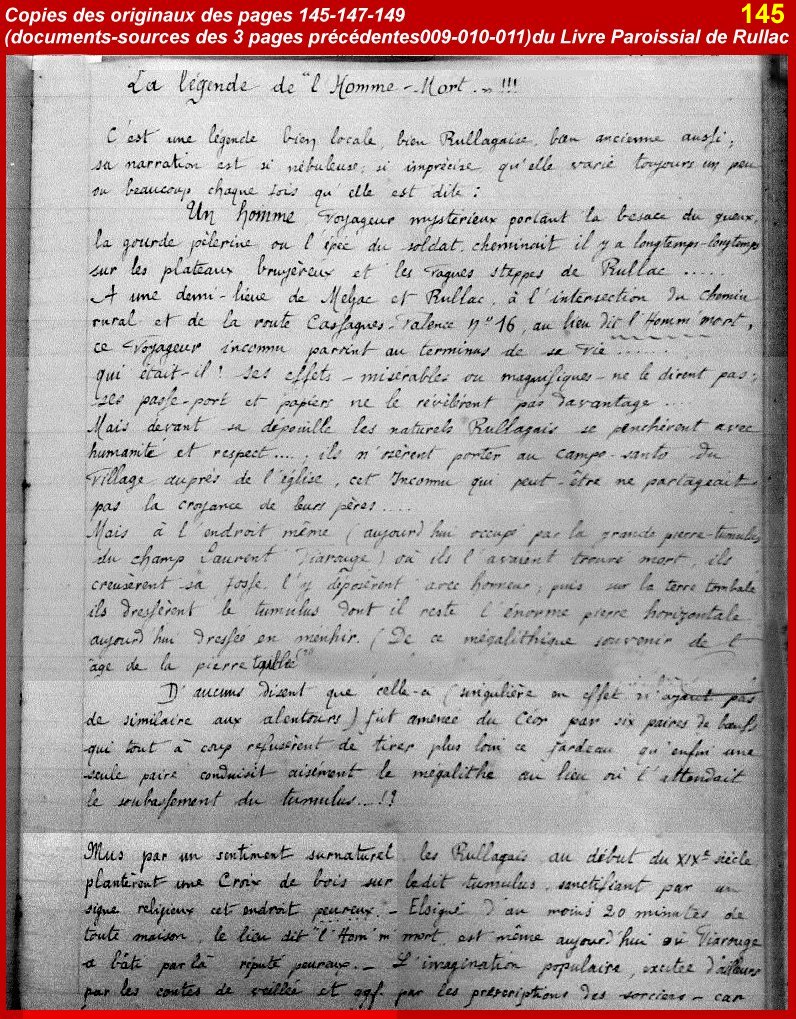 Copies des originaux des pages 145-147-149
145
(documents-sources des 3 pages précédentes009-010-011)du Livre Paroissial de Rullac
La légende de "l'Homme-Mort..." !!!
C'est une légende bien locale, bien Rullagaise, bien ancienne aussi ;
sa narration est si nébuleuse, si imprécise, qu'elle varie toujours un peu
ou beaucoup chaque fois qu'elle est dite :
Un homme voyageur mystérieux portant la besace du gueux,
la gourde pèlerine ou l'épée du soldat, cheminait il y a longtemps-longtemps
sur les plateaux bruyèreux et les vagues steppes de Rullac .....
A une demi-lieue de Meljac et Rullac, à l'intersection du chemin
rural et de la route Cassagnes-Valence n° 16, au lieu dit l'Homm'mort,
ce voyageur inconnu parvint au terminus de sa vie .......
qui était-il ! ses effets - misérables ou magnifiques - ne le dirent pas ;
ses passe-port et papiers ne le révélèrent pas davantage ....
Mais devant sa dépouille les naturels Rullagais se penchèrent avec
humanité et respect .... ; ils n'osèrent porter au campo-santo du
village auprès de l'église, cet Inconnu qui peut-être ne partageait
pas la croyance de leurs pères ....
Mais à l'endroit même (aujourd'hui occupé par la grande pierre-tumulus
du champ Laurent Viarouge) où ils l'avaient trouvé mort, ils
creusèrent sa fosse, l'y déposèrent avec honneur, puis sur la terre tombale
ils dressèrent le tumulus dont il reste l'énorme pierre horizontale
aujourd'hui dressée en menhir. (De ce mégalithique souvenir de l'
âge de la pierre taillée
D'aucuns disent que celle-ci (singulière en effet n'ayant pas
de similaire aux alentours) fut amenée du Céor par six paires de bœufs
qui tout à coup refusèrent de tirer plus loin ce fardeau qu'enfin une
seule paire conduisit aisément le mégalithe au lieu où l'attendait
le soubassement du tumulus....!?
Mus par un sentiment surnaturel, les Rullagais au début du XIXe siècle
plantèrent une Croix de bois sur ledit tumulus, sanctifiant par un
signe religieux cet endroit peureux. - Eloigné d'au moins 20 minutes de
toute maison, le lieu dit "l'Hom'm'mort, est même aujourd'hui où Viarouge
a bâti par là réputé peureux. - L'imagination populaire, excitée d'ailleurs
par les contes de veillée et par les prescriptions des sorciers - car